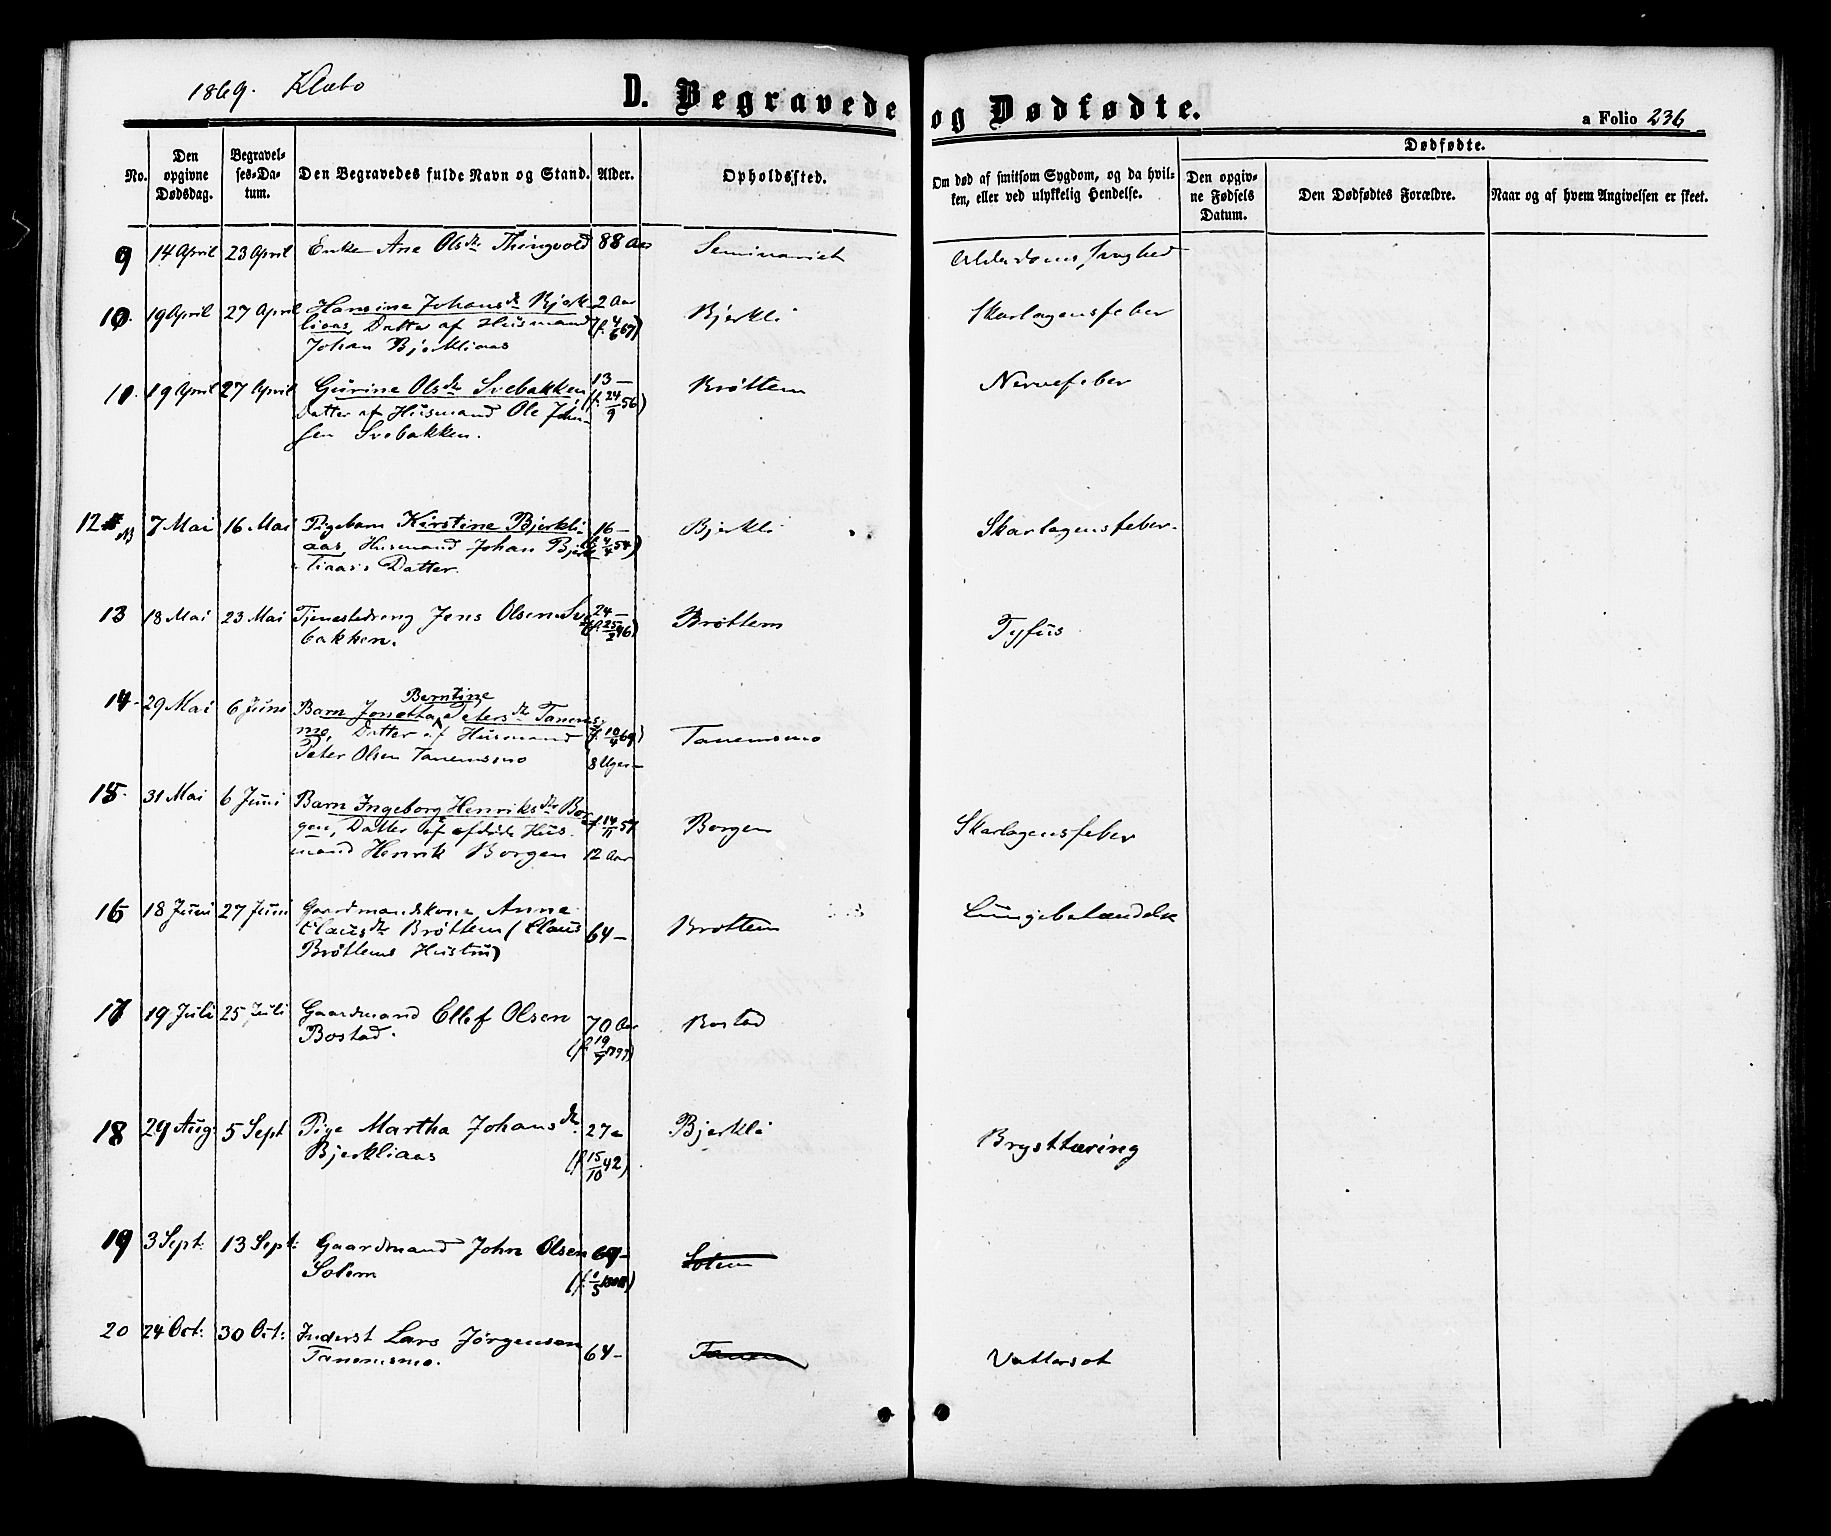 1869. Klæbo
D. Begravede og Dødfødte.
a Folio 236
No.
Den opgivne Dødsdag.
Begravelses-Datum.
Den Begravedes fulde Navn og Stand.
Alder.
Opholdssted.
Om død af smitsom Sygdom, og da hvilken, eller ved ulykkelig Hendelse.
Dødfødte.
Den opgivne Fødsels Datum.
Den Dødfødtes Forældre.
Naar og af hvem Angivelsen er skeet.
9 14 April 23 April Enke Ane Olsdr Thingvold 88 Aar Seminariet Alderdomssvaghed
10. 19 April 27 April Hansine Johansdr Bjerk- 2 Aar Bjerkli Skarlagensfeber
liaas, Datter af Husmand (f. 4/6 67)
Johan Bjerkliaas
11. 19 April 27 April Gurine Olsdr Svebakken, 13 — Brøttem Nervefeber
Datter af Husmand Ole John- (f. 24/9 56)
sen Svebakken.
12 7 Mai 16 Mai Pigebarn Kirstine Bjerkli- 16 — Bjerkli Skarlagensfeber.
aas, Husmand Johan Bjerk- (f. 4/4 54)
liaas's Datter.
13 18 Mai 23 Mai Tjenestedreng Jens Olsen Sve- 24 — Brøttem Tyfus
bakken. (f. 25/2 46)
14. 29 Mai 6 Juni Berntine
Barn Jonetta Petersdr Tanems-
mo, Datter af Husmand (f. 10/4 69) Tanemsmo
Peter Olsen Tanemsmo 8 Uger —
15. 31 Mai 6 Juni Barn Ingeborg Henriksdr Bor-
gen, Datter af afdøde Hus- f. 14/11 57 Borgen Skarlagensfeber
mand Henrik Borgen 12 Aar
16 18 Juni 27 Juni Gaardmandskone Anne
Clausdr Brøttem (Claus 64 — Brøttem Lungebetændelse
Brøttems Hustru)
17 19 Juli 25 Juli Gaardmand Ellef Olsen 70 Aar Bostad
Bostad. (f. 19/9 1799)
18 29 Aug: 5 Sept Pige Martha Johansdr 27 — Bjerkli Brysttæring
Bjerkliaas (f. 15/10 42)
19 3 Sept: 13 Sept: Gaardmand John Olsen 69 — Solem
Solem
20 24 Oct: 30 Oct: Inderst Lars Jørgensen 64 — Tanem Vattersot
Tanemsmo.